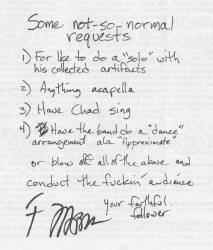 Some not-so-normal
requests
1) For Ike to do a "solo" with
his collected artifacts
2) Anything acapella
3) Have Chad sing
4) Have the band do a "dance"
arrangement ala "Approximate"
or blow off all of the above and
conduct the fuckin' audience
Your faithful
follower